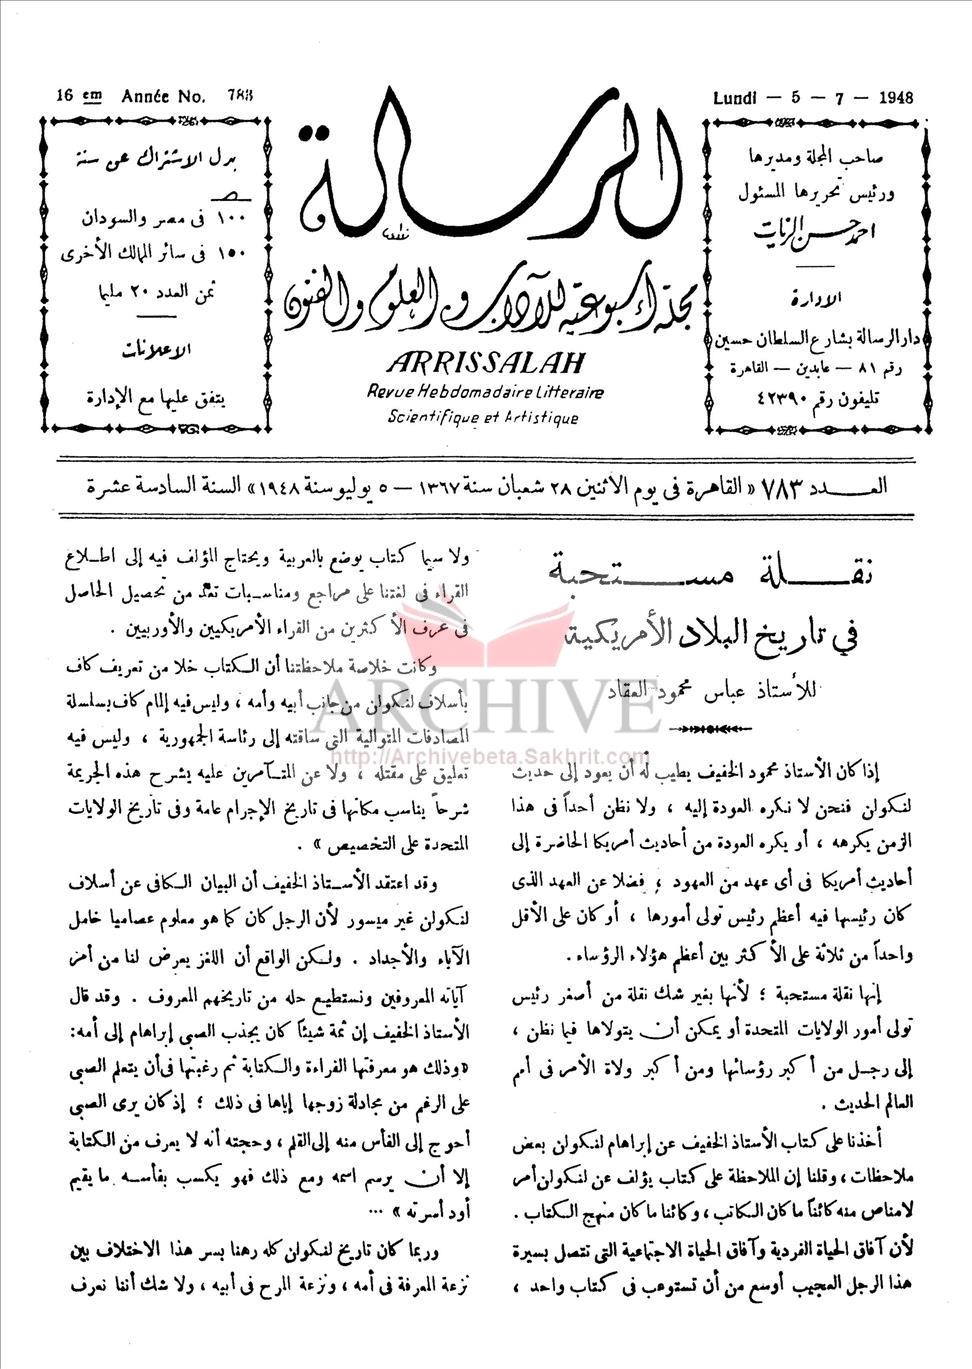 16 em Année No. 783
Lundi — 5 — 7 — 1948
بدل الاشتراك عن سنة
١٠٠ فى مصر والسودان
١٥٠ فى سائر الممالك الأخرى
ثمن العدد ٢٠ مليما
الاعلانات
يتفق عليها مع الإدارة
الرسالة
مجلة أسبوعية للآداب والعلوم والفنون
ARRISSALAH
Revue Hebdomadaire Litteraire
Scientifique et Artistique
صاحب المجلة ومديرها
ورئيس تحريرها المسئول
احمد حسن الزيات
الادارة
دار الرسالة بشارع السلطان حسين
رقم ٨١ — عابدين — القاهرة
تليفون رقم ٤٢٣٩٠
العـــدد ٧٨٣ « القاهرة فى يوم الاثنين ٢٨ شعبان سنة ١٣٦٧ — ٥ يوليو سنة ١٩٤٨ » السنة السادسة عشرة
نقـــلة مســـتحبة
في تاريخ البلاد الأمريكية
للأستاذ عباس محمود العقاد
إذا كان الأستاذ محمود الخفيف يطيب له أن يعود إلى حديث
لنكولن فنحن لا نكره العودة إليه ، ولا نظن أحداً فى هذا
الزمن يكرهه ، أو يكره العودة من أحاديث أمريكا الحاضرة إلى
أحاديث أمريكا فى أى عهد من العهود ، فضلا عن العهد الذى
كان رئيسها فيه أعظم رئيس تولى أمورها ، أو كان على الأقل
واحداً من ثلاثة على الأكثر بين أعظم هؤلاء الرؤساء .
إنها نقلة مستحبة ؛ لأنها بغير شك نقلة من أصغر رئيس
تولى أمور الولايات المتحدة أو يمكن أن يتولاها فيما نظن ،
إلى رجل من أكبر رؤسائها ومن أكبر ولاة الأمر فى أمم
العالم الحديث .
أخذنا على كتاب الأستاذ الخفيف عن إبراهام لنكولن بعض
ملاحظات ، وقلنا إن الملاحظة على كتاب يؤلف عن لنكولن أمر
لامناص منه كائناً ما كان الكاتب ، وكائنا ما كان منهج الكتاب .
لأن آفاق الحياة الفردية وآفاق الحياة الاجتماعية التى تتصل بسيرة
هذا الرجل العجيب أوسع من أن تستوعب فى كتاب واحد ،
ولا سيما كتاب يوضع بالعربية ويحتاج المؤلف فيه إلى اطلاع
القراء فى لغتنا على مراجع ومناسبات تعد من تحصيل الحاصل
فى عرف الأكثرين من القراء الأمريكيين والأوربيين .
وكانت خلاصة ملاحظتنا أن الكتاب خلا من تعريف كاف
بأسلاف لنكولن من جانب أبيه وأمه ، وليس فيه إلمام كاف بسلسلة
المصادفات المتوالية التى ساقته إلى رئاسة الجمهورية ، وليس فيه
تعليق على مقتله ، ولا عن المتآمرين عليه يشرح هذه الجريمة
شرحاً يناسب مكانتها فى تاريخ الإجرام عامة وفى تاريخ الولايات
المتحدة على التخصيص » .
وقد اعتقد الأستاذ الخفيف أن البيان الكافى عن أسلاف
لنكولن غير ميسور لأن الرجل كان كما هو معلوم عصاميا خامل
الآباء والأجداد . ولكن الواقع أن اللغز يعرض لنا من أمر
آبائه المعروفين ونستطيع حله من تاريخهم المعروف . وقد قال
الأستاذ الخفيف إن ثمة شيئاً كان يجذب الصبى إبراهام إلى أمه:
«وذلك هو معرفتها القراءة والكتابة ثم رغبتها فى أن يتعلم الصبى
على الرغم من مجادلة زوجها إياها فى ذلك ؛ إذ كان يرى الصبى
أحوج إلى الفأس منه إلى القلم ، وحجته أنه لا يعرف من الكتابة
إلا أن يرسم اسمه ومع ذلك فهو يكسب بفأسه ما يقيم
أود أسرته » ...
وربما كان تاريخ لنكولن كله رهنا بسر هذا الاختلاف بين
نزعة المعرفة فى أمه ، ونزعة المرح فى أبيه ، ولا شك أننا نعرف
ARCHIVE
http://Archivebeta.Sakhrit.com